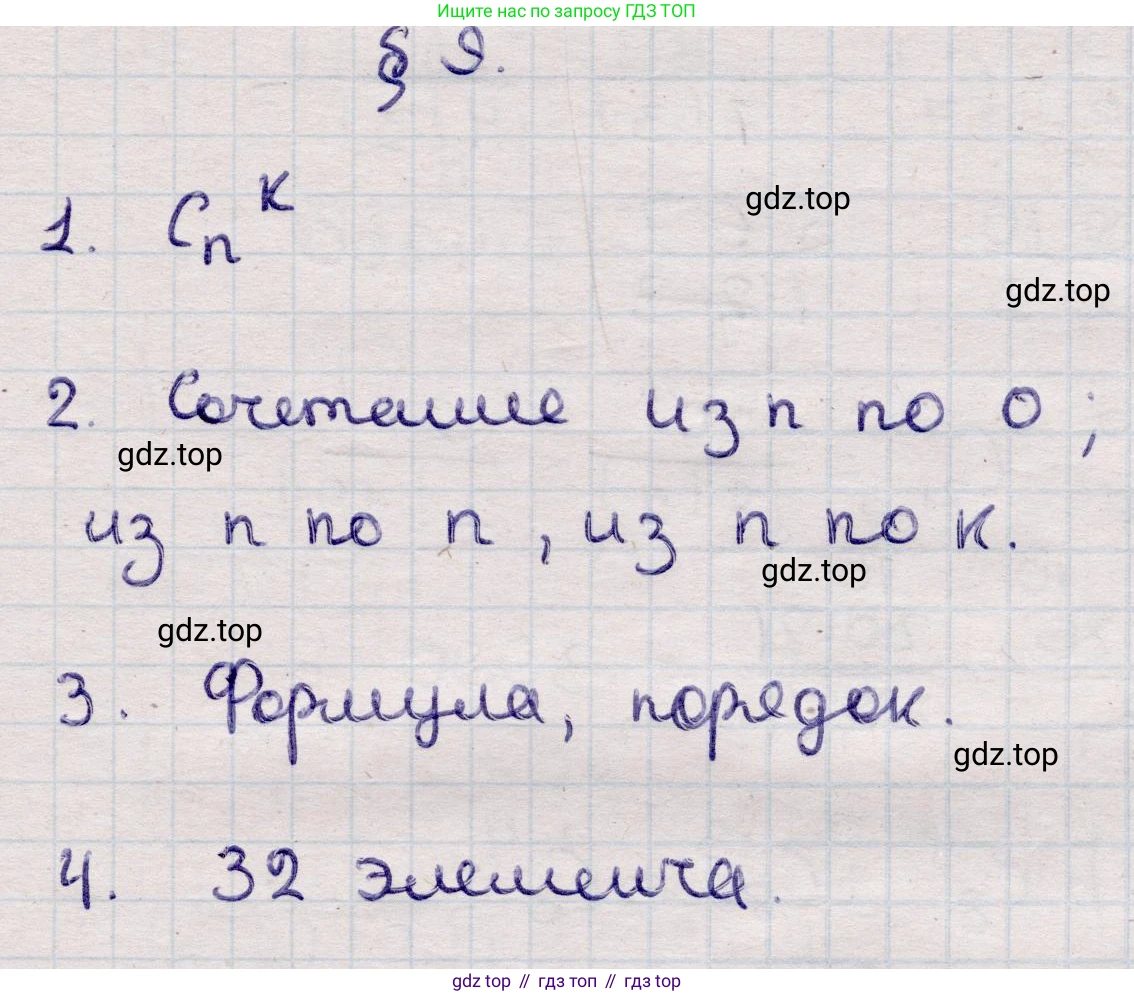 Ищите нас по запросу ГДЗ ТОП
§ 9.
1. Cₙᵏ
gdz.top
gdz.top
2. Сочетание из n по 0;
gdz.top
из n по n, из n по к.
gdz.top
gdz.top
3. Формула, порядок.
gdz.top
4. 32 элемента.
gdz top // гдз топ // гдз top